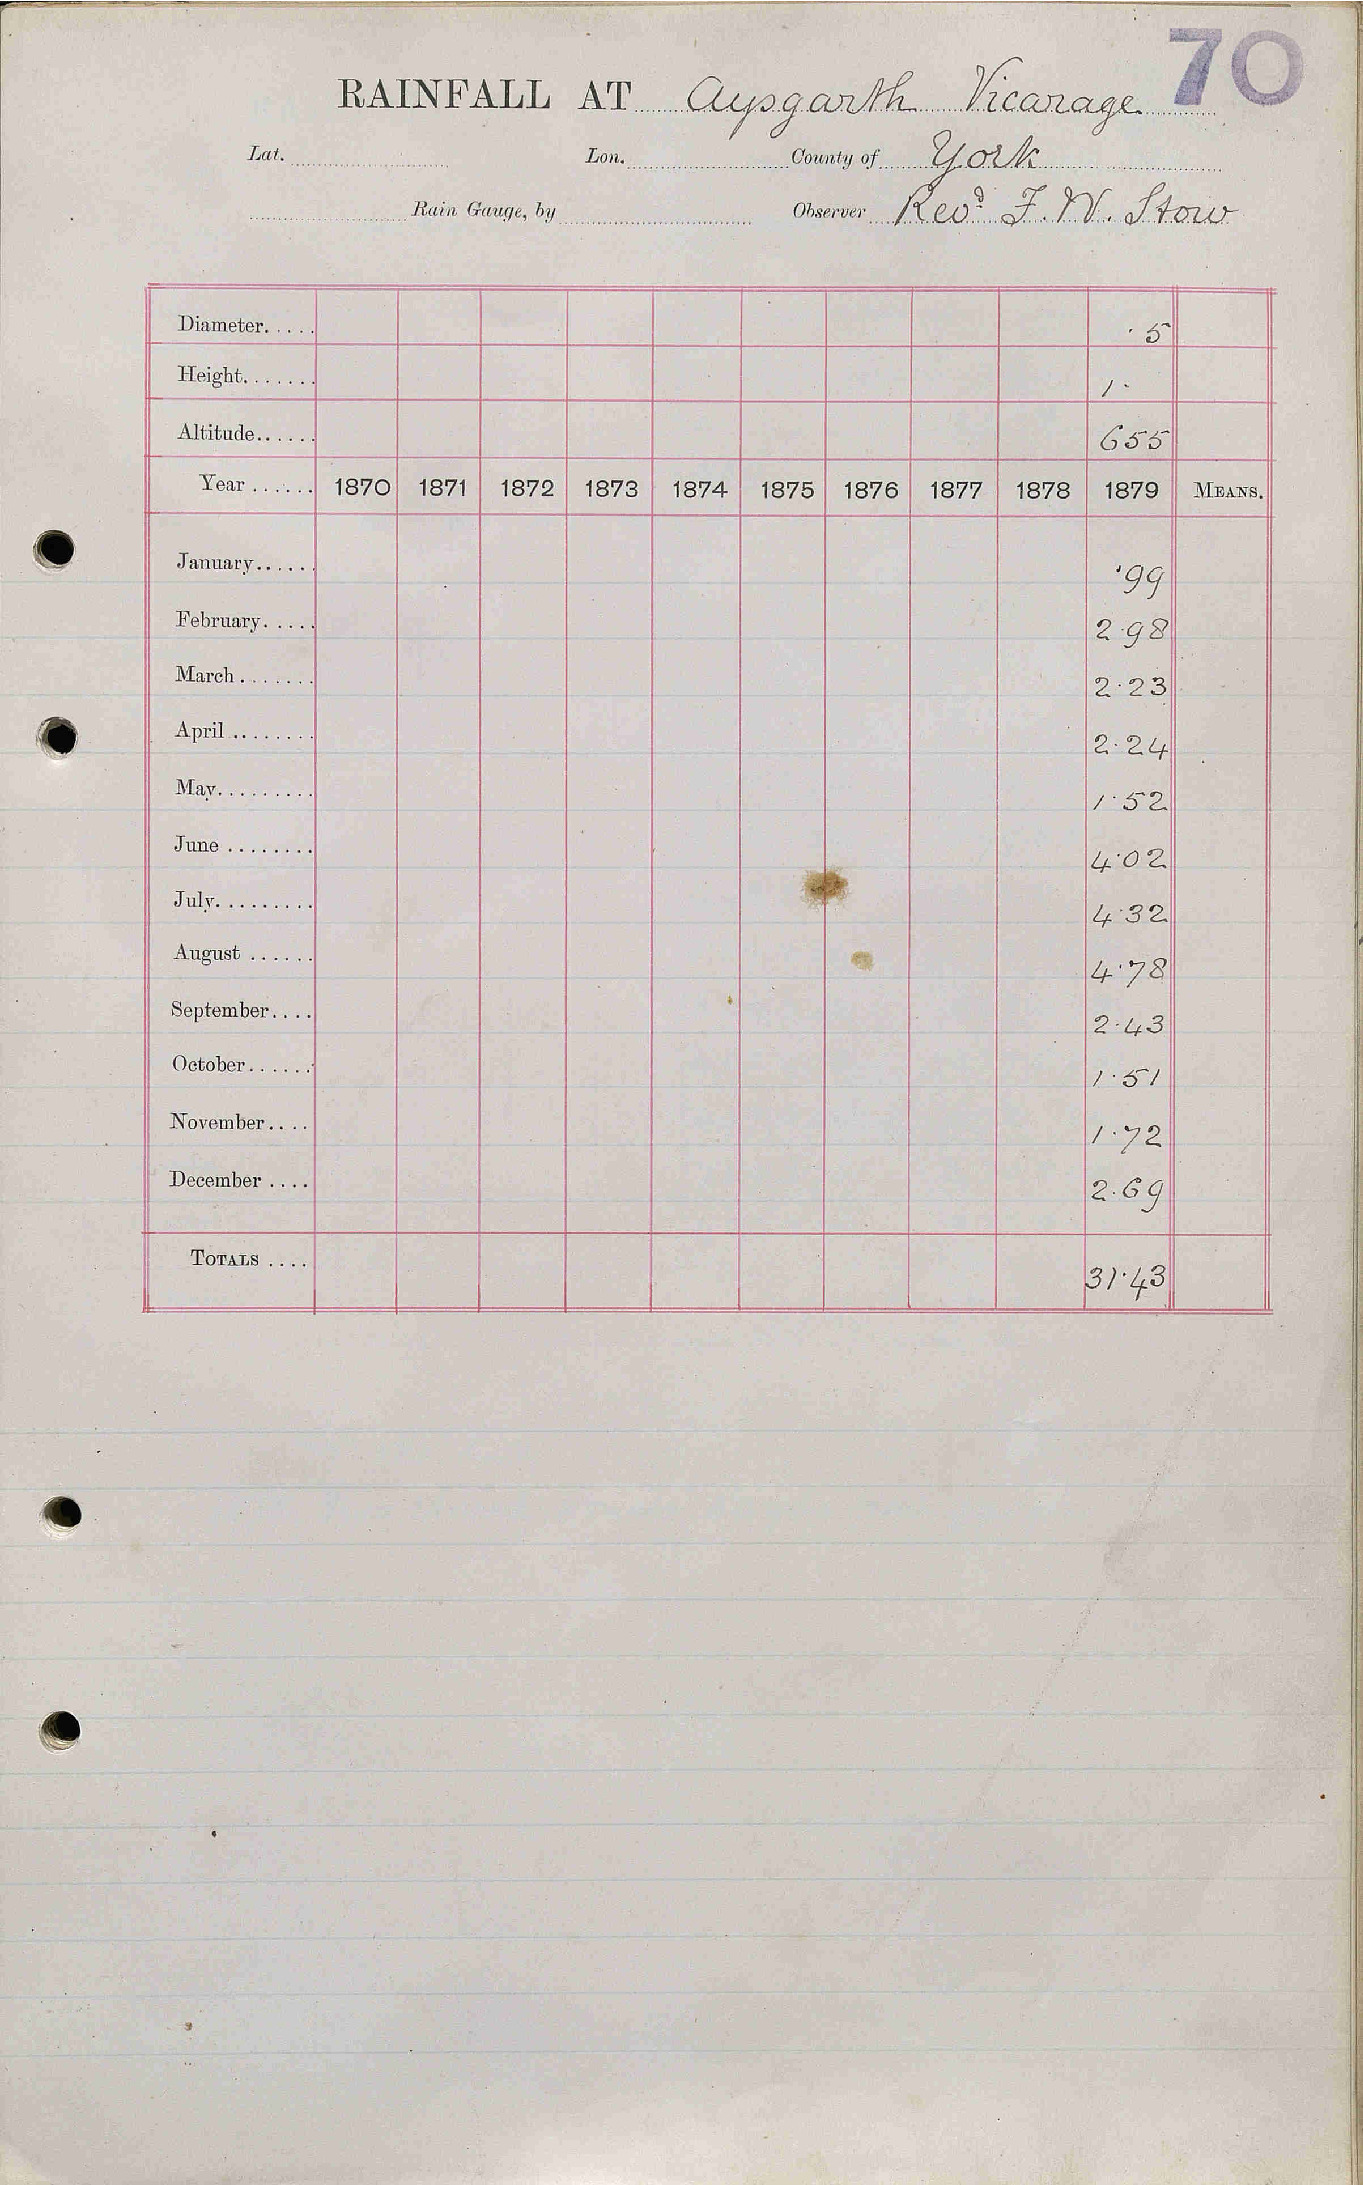 70
RAINFALL AT Aysgarth Vicarage
Lat. Lon. County of York
Rain Gauge, by Observer Revd. F. W. Stow
Diameter..... ·5
Height....... 1·
Altitude...... 655
Year ...... 1870 1871 1872 1873 1874 1875 1876 1877 1878 1879 MEANS.
January...... ·99
February..... 2·98
March....... 2·23
April ........ 2·24
May......... 1·52
June ........ 4·02
July......... 4·32
August ...... 4·78
September.... 2·43
October...... 1·51
November.... 1·72
December .... 2·69
TOTALS .... 31·43